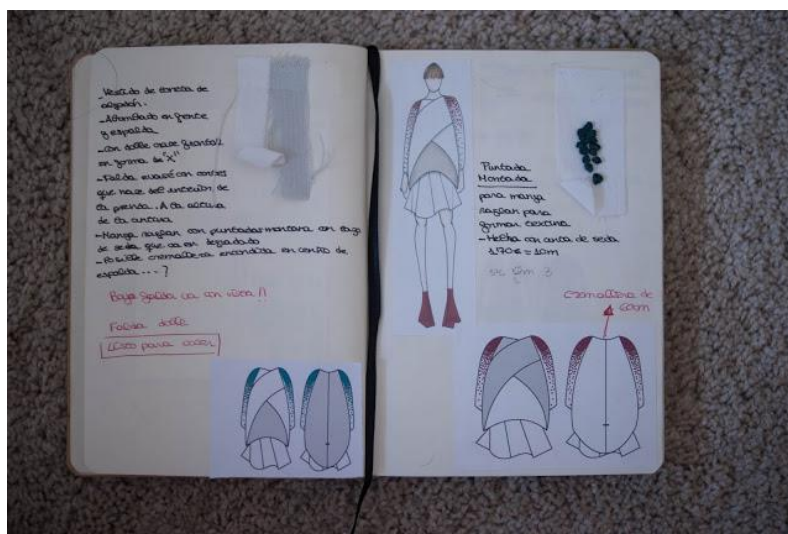 - Vestido de loneta de
algodón.
- Abombado en frente
y espalda
- Con doble cruce frontal
en forma de "X"
- Falda evasé con cortes
que nace del interior de
la prenda. A la altura
de la cintura
- Manga raglan con puntadas montada con hilo
de seda que va en degradado
- Posible cremallera escondida en centro de
espalda...?
Bajo falda va con vista!!
Falda doble
Listo para coser
Puntada
Montada
para manga
raglan para
formar textura
- Hecha con cinta de seda
1.70€ = 10m
cremallera de
60cm